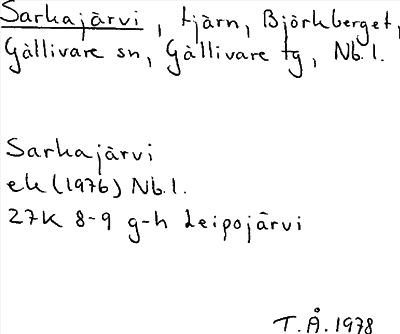 Sarkajärvi, tjärn, Björkberget,
Gällivare sn, Gällivare tg, Nb.l.
Sarkajärvi
ek (1976) Nb.l.
27K 8-9 g-h Leipojärvi
T.Å. 1978